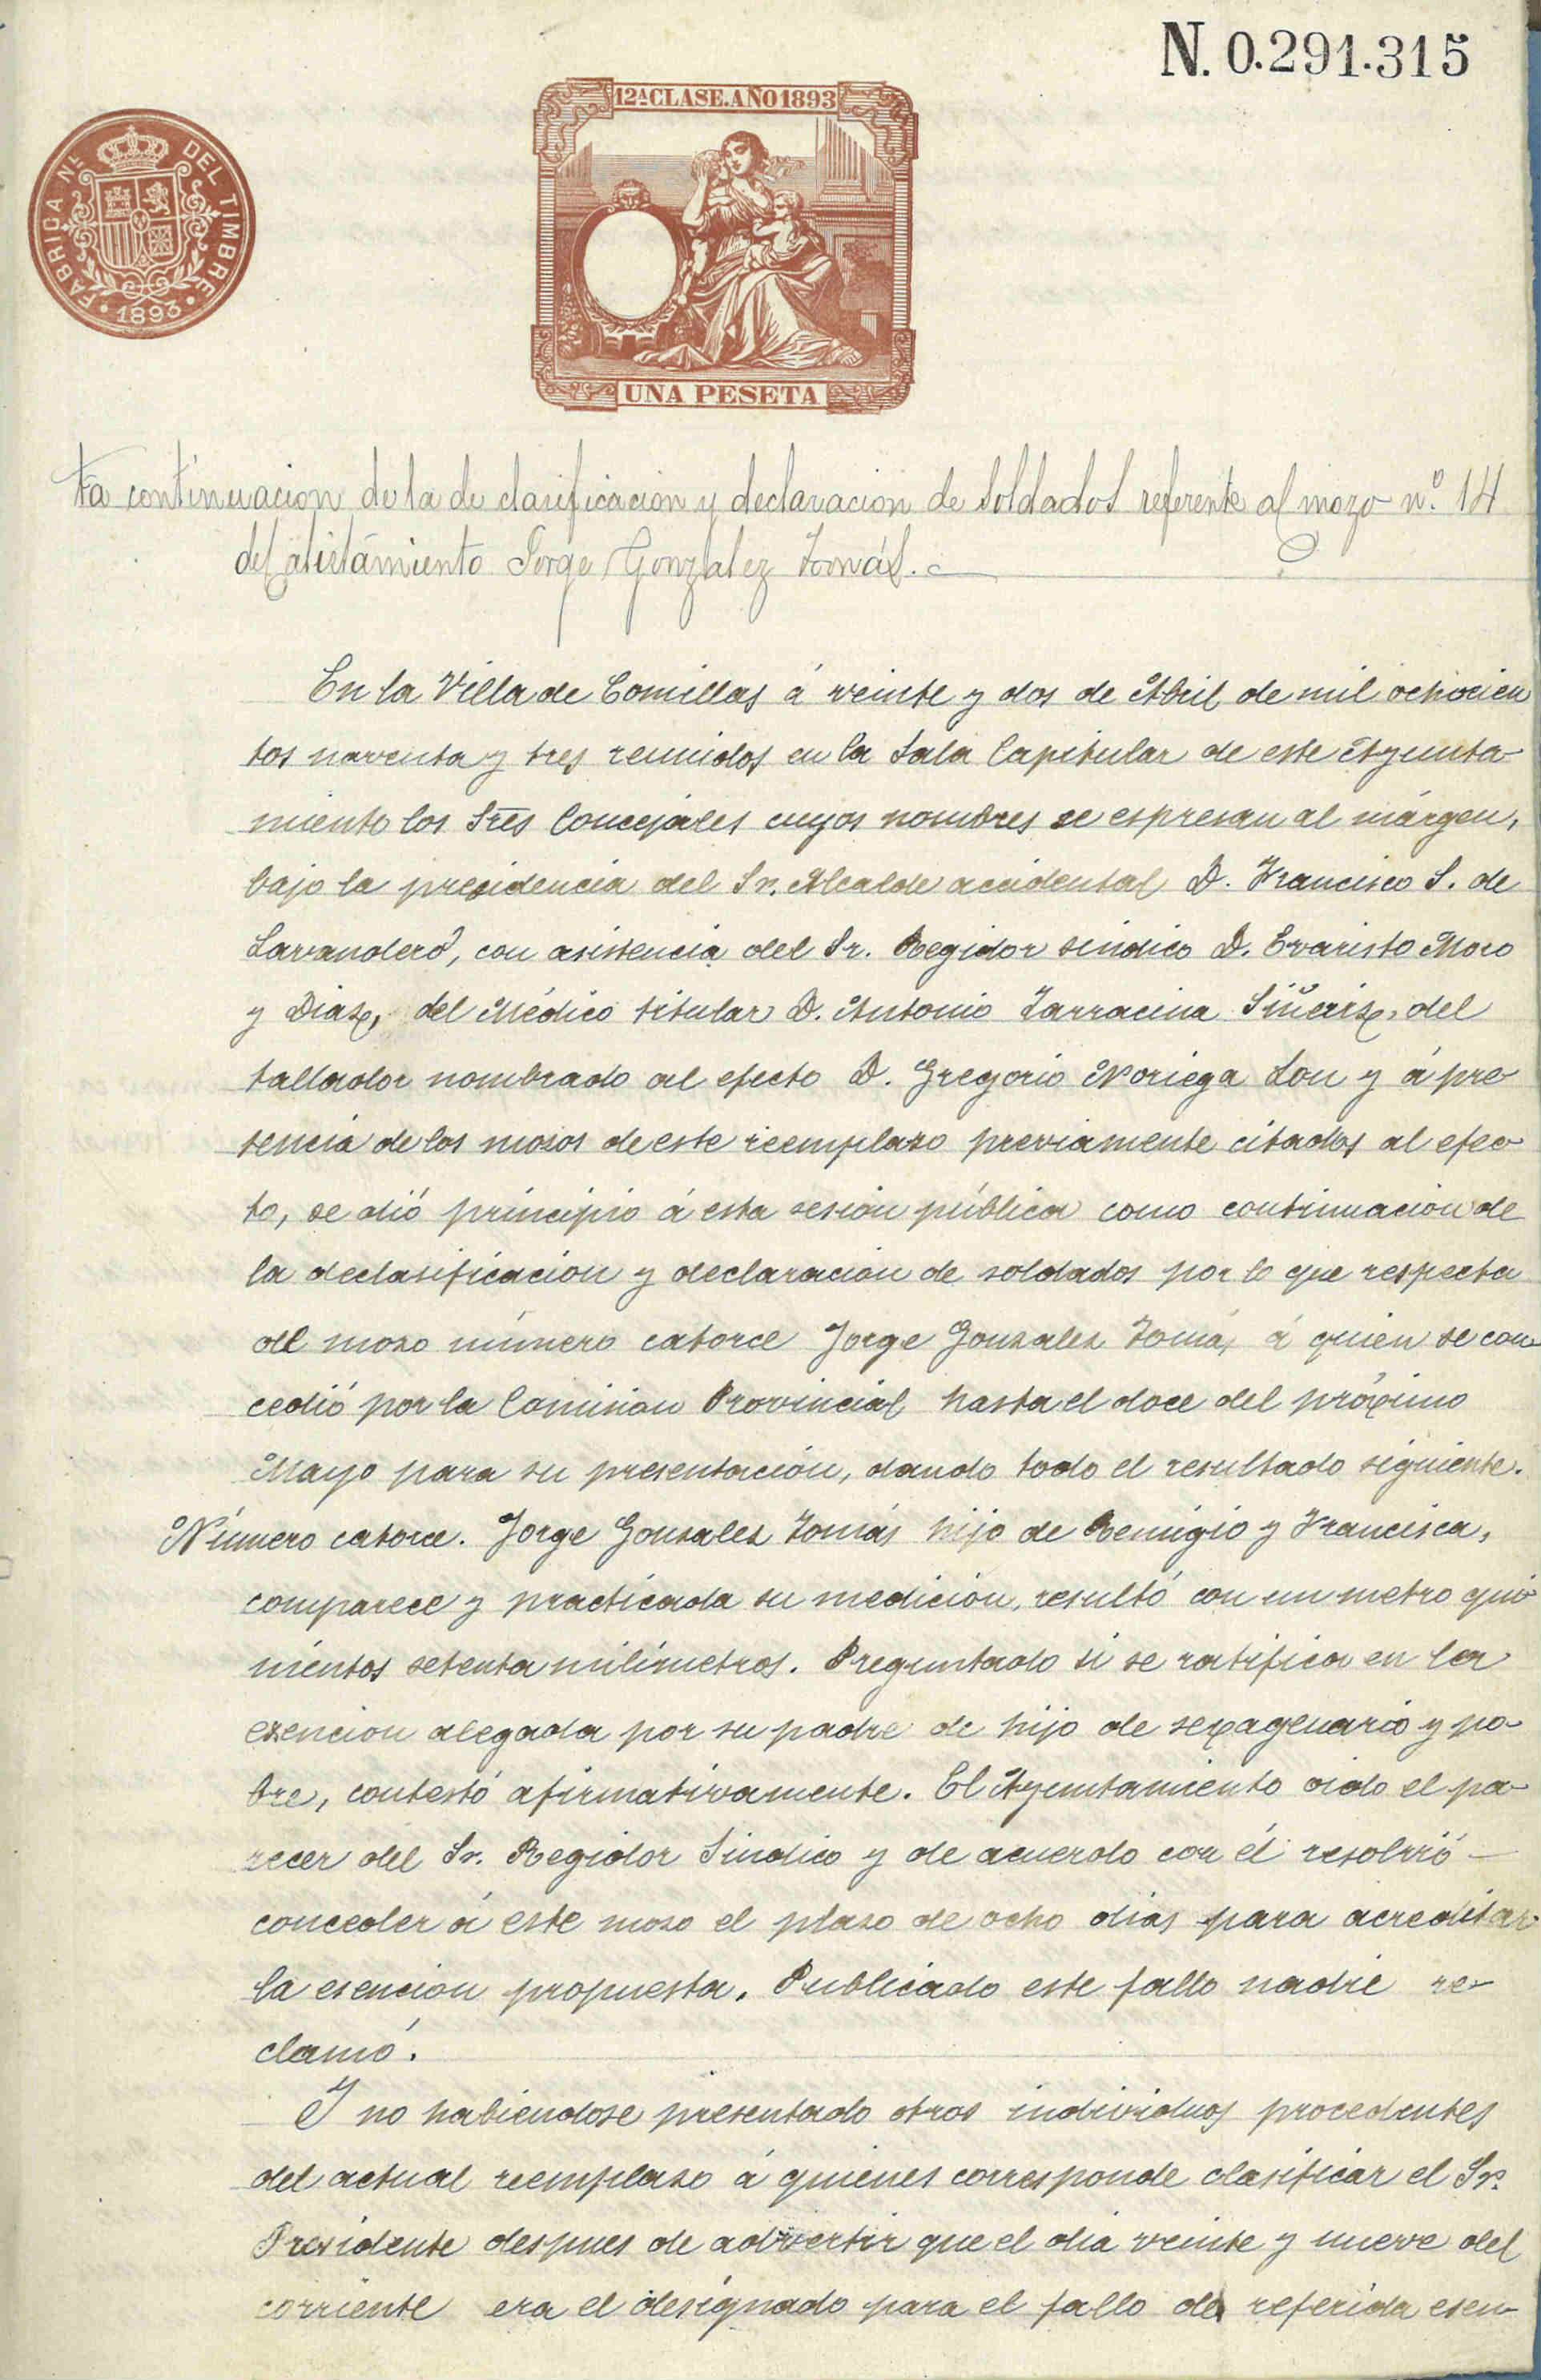 N. 0.291.315
12ª CLASE. AÑO 1893
FABRICA Nˡ. DEL TIMBRE
1893
UNA PESETA
ta continuacion de la de clasificacion y declaracion de soldados referente al mozo n.º 14
del alistamiento Jorge Gonzalez Tomás.
En la Villa de Comillas á veinte y dos de Abril de mil ochocien
tos noventa y tres reunidos en la Sala Capitular de este Ayunta
miento los Sres Concejales cuyos nombres se espresan al márgen,
bajo la presidencia del Sr. Alcalde accidental D. Francisco S. de
Lavandero, con asistencia del Sr. Regidor sindico D. Evaristo Moro
y Diaz, del Médico titular D. Antonio Tarracina Siñeriz, del
tallador nombrado al efecto D. Gregorio Noriega Lon y á pre
sencia de los mozos de este reemplazo previamente citados al efec
to, se dió principio á esta sesion pública como continuacion de
la declasificación y declaracion de soldados por lo que respecta
al mozo número catorce Jorge Gonzalez Tomás á quien se con
cedió por la Comision Provincial hasta el doce del próximo
Mayo para su presentación, dando todo el resultado siguiente.
Número catorce. Jorge Gonzalez Tomás hijo de Remigio y Francisca,
comparece y practicada su medición, resultó con un metro qui
nientos setenta milimetros. Preguntado si se ratifica en la
exencion alegada por su padre de hijo de sexagenario y po-
bre, contestó afirmativamente. El Ayuntamiento oido el pa-
recer del Sr. Regidor Sindico y de acuerdo con él resolvió
conceder á este mozo el plazo de ocho dias para acreditar
la esencion propuesta. Publicado este fallo nadie re-
clamó.
Y no habiendose presentado otros individuos procedentes
del actual reemplazo á quienes corresponde clasificar el Sr.
Presidente despues de advertir que el dia veinte y nueve del
corriente era el designado para el fallo de referida esen-